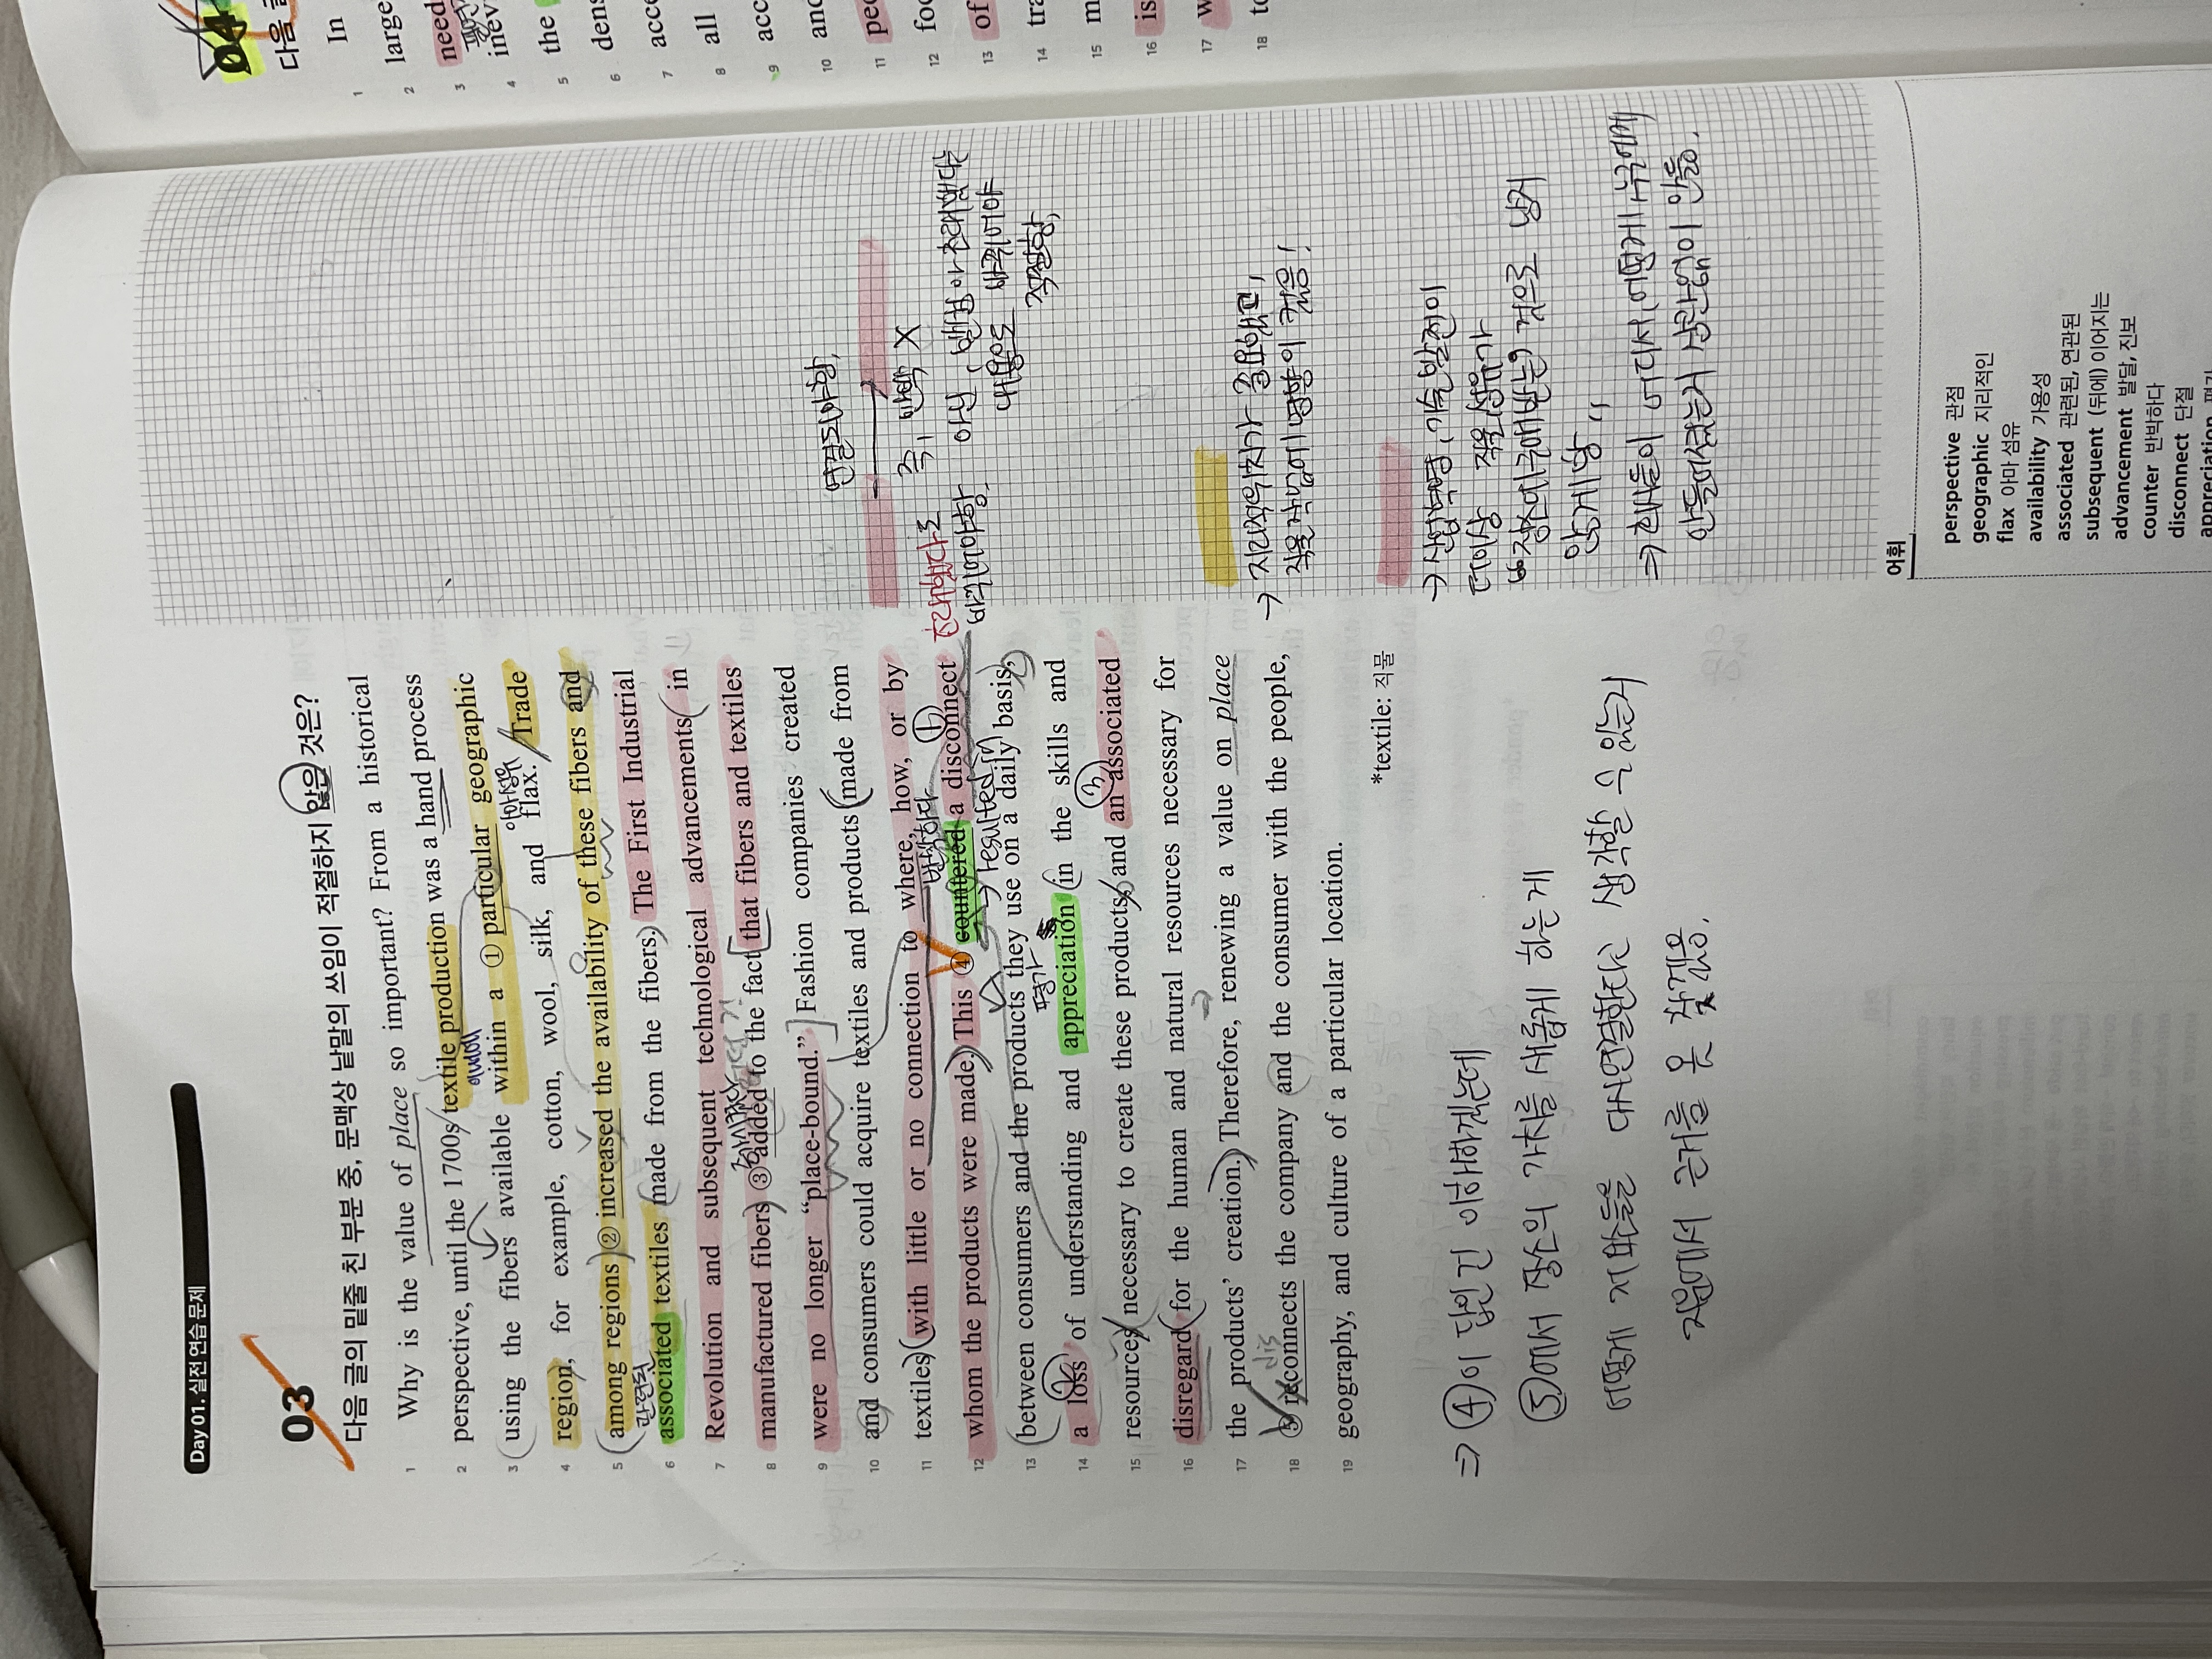 Day 01. 실전 연습 문제
03
다음 글의 밑줄 친 부분 중, 문맥상 낱말의 쓰임이 적절하지 않은 것은?
1 Why is the value of place so important? From a historical
2 perspective, until the 1700s textile production was a hand process
3 using the fibers available within a ① particular geographic
4 region, for example, cotton, wool, silk, and flax. Trade
5 among regions ② increased the availability of these fibers and
6 associated textiles made from the fibers. The First Industrial
7 Revolution and subsequent technological advancements in
8 manufactured fibers ③ added to the fact that fibers and textiles
9 were no longer “place-bound.” Fashion companies created
10 and consumers could acquire textiles and products made from
11 textiles with little or no connection to where, how, or by
12 whom the products were made. This ④ countered a disconnect
13 between consumers and the products they use on a daily basis,
14 a loss of understanding and appreciation in the skills and
15 resources necessary to create these products, and an associated
16 disregard for the human and natural resources necessary for
17 the products’ creation. Therefore, renewing a value on place
18 ⑤ reconnects the company and the consumer with the people,
19 geography, and culture of a particular location.
*textile: 직물
안에서
아마섬유
관련된
반박하다
resulted in
평가
dis
① ② ③
⇒ ④이 답인건 이해하겠는데
⑤에서 장소의 가치를 새롭게 하는게
어떻게 제품들을 다시연결한다고 생각할 수 있는지
지문에서 근거를 못 찾겠음.
연결되어야함.
즉, 반박 X
초래했다로
바뀌어야함. 아닌, 반박이 초래했다는
내용으로 바뀌어야
적절함.
→ 지리적위치가 중요했고,
직물작업에 영향이 컸음!
→ 산업혁명, 기술발전이
더이상 직물, 섬유가
“장소에 구애받는” 것으로 남지
않게 함”
⇒ 회사들이 어디서, 어떻게, 누구에게
만들어졌는지 상관없이 만듦.
어휘
perspective 관점
geographic 지리적인
flax 아마 섬유
availability 가용성
associated 관련된, 연관된
subsequent (뒤에) 이어지는
advancement 발달, 진보
counter 반박하다
disconnect 단절
appreciation
04
다음 글
1 In
2 large
3 need
4 inev
5 the
6 dens
7 acce
8 all
9 acc
10 and
11 pec
12 foo
13 of
14 tra
15 m
16 is
17 w
18 to